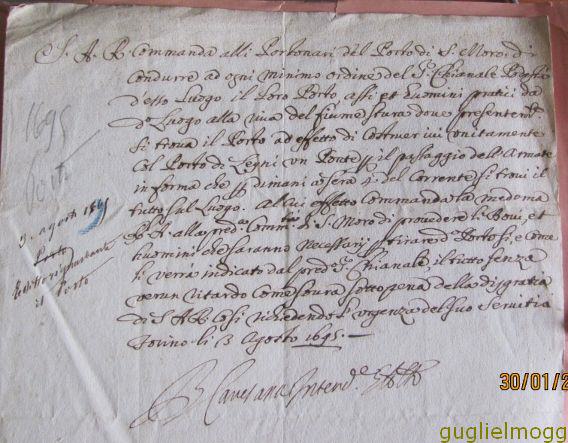 S. A. R. Commanda alli Portonari del Porto di S. Moro, di
Condurre ad ogni minimo ordine del S.r Chianale Podestà
d'esso Luogo il loro Porto, assi et huomini pratici da
d.o Luogo alla riva del fiume stura dove presentem.te
si trova il Porto ad effetto di Costruer ivi unitamente
Col Porto di Legni un Ponte p il passaggio dell'Armate
in forma che p dimani a sera 4. del Corrente si trovi il
tutto sul Luogo. Al cui effetto Commanda la medema
R. A. alla pred.a Comm.tà di S. Moro di provedere li Bovi, et
huomini che saranno necessarj p tirare d.o Porto si, e Come
li verrà indicato dal pred.o S.r Chianale, il tutto senza
verun ritardo Come soura sotto pena della disgratia
di S. A. R. Così richiedendo l'urgenza del suo Servitio
Torino li 3 Agosto 1695.
Intend.e
1695
Porto
3. agosto 1695
Porto
il Porto
30/01/2
guglielmogg